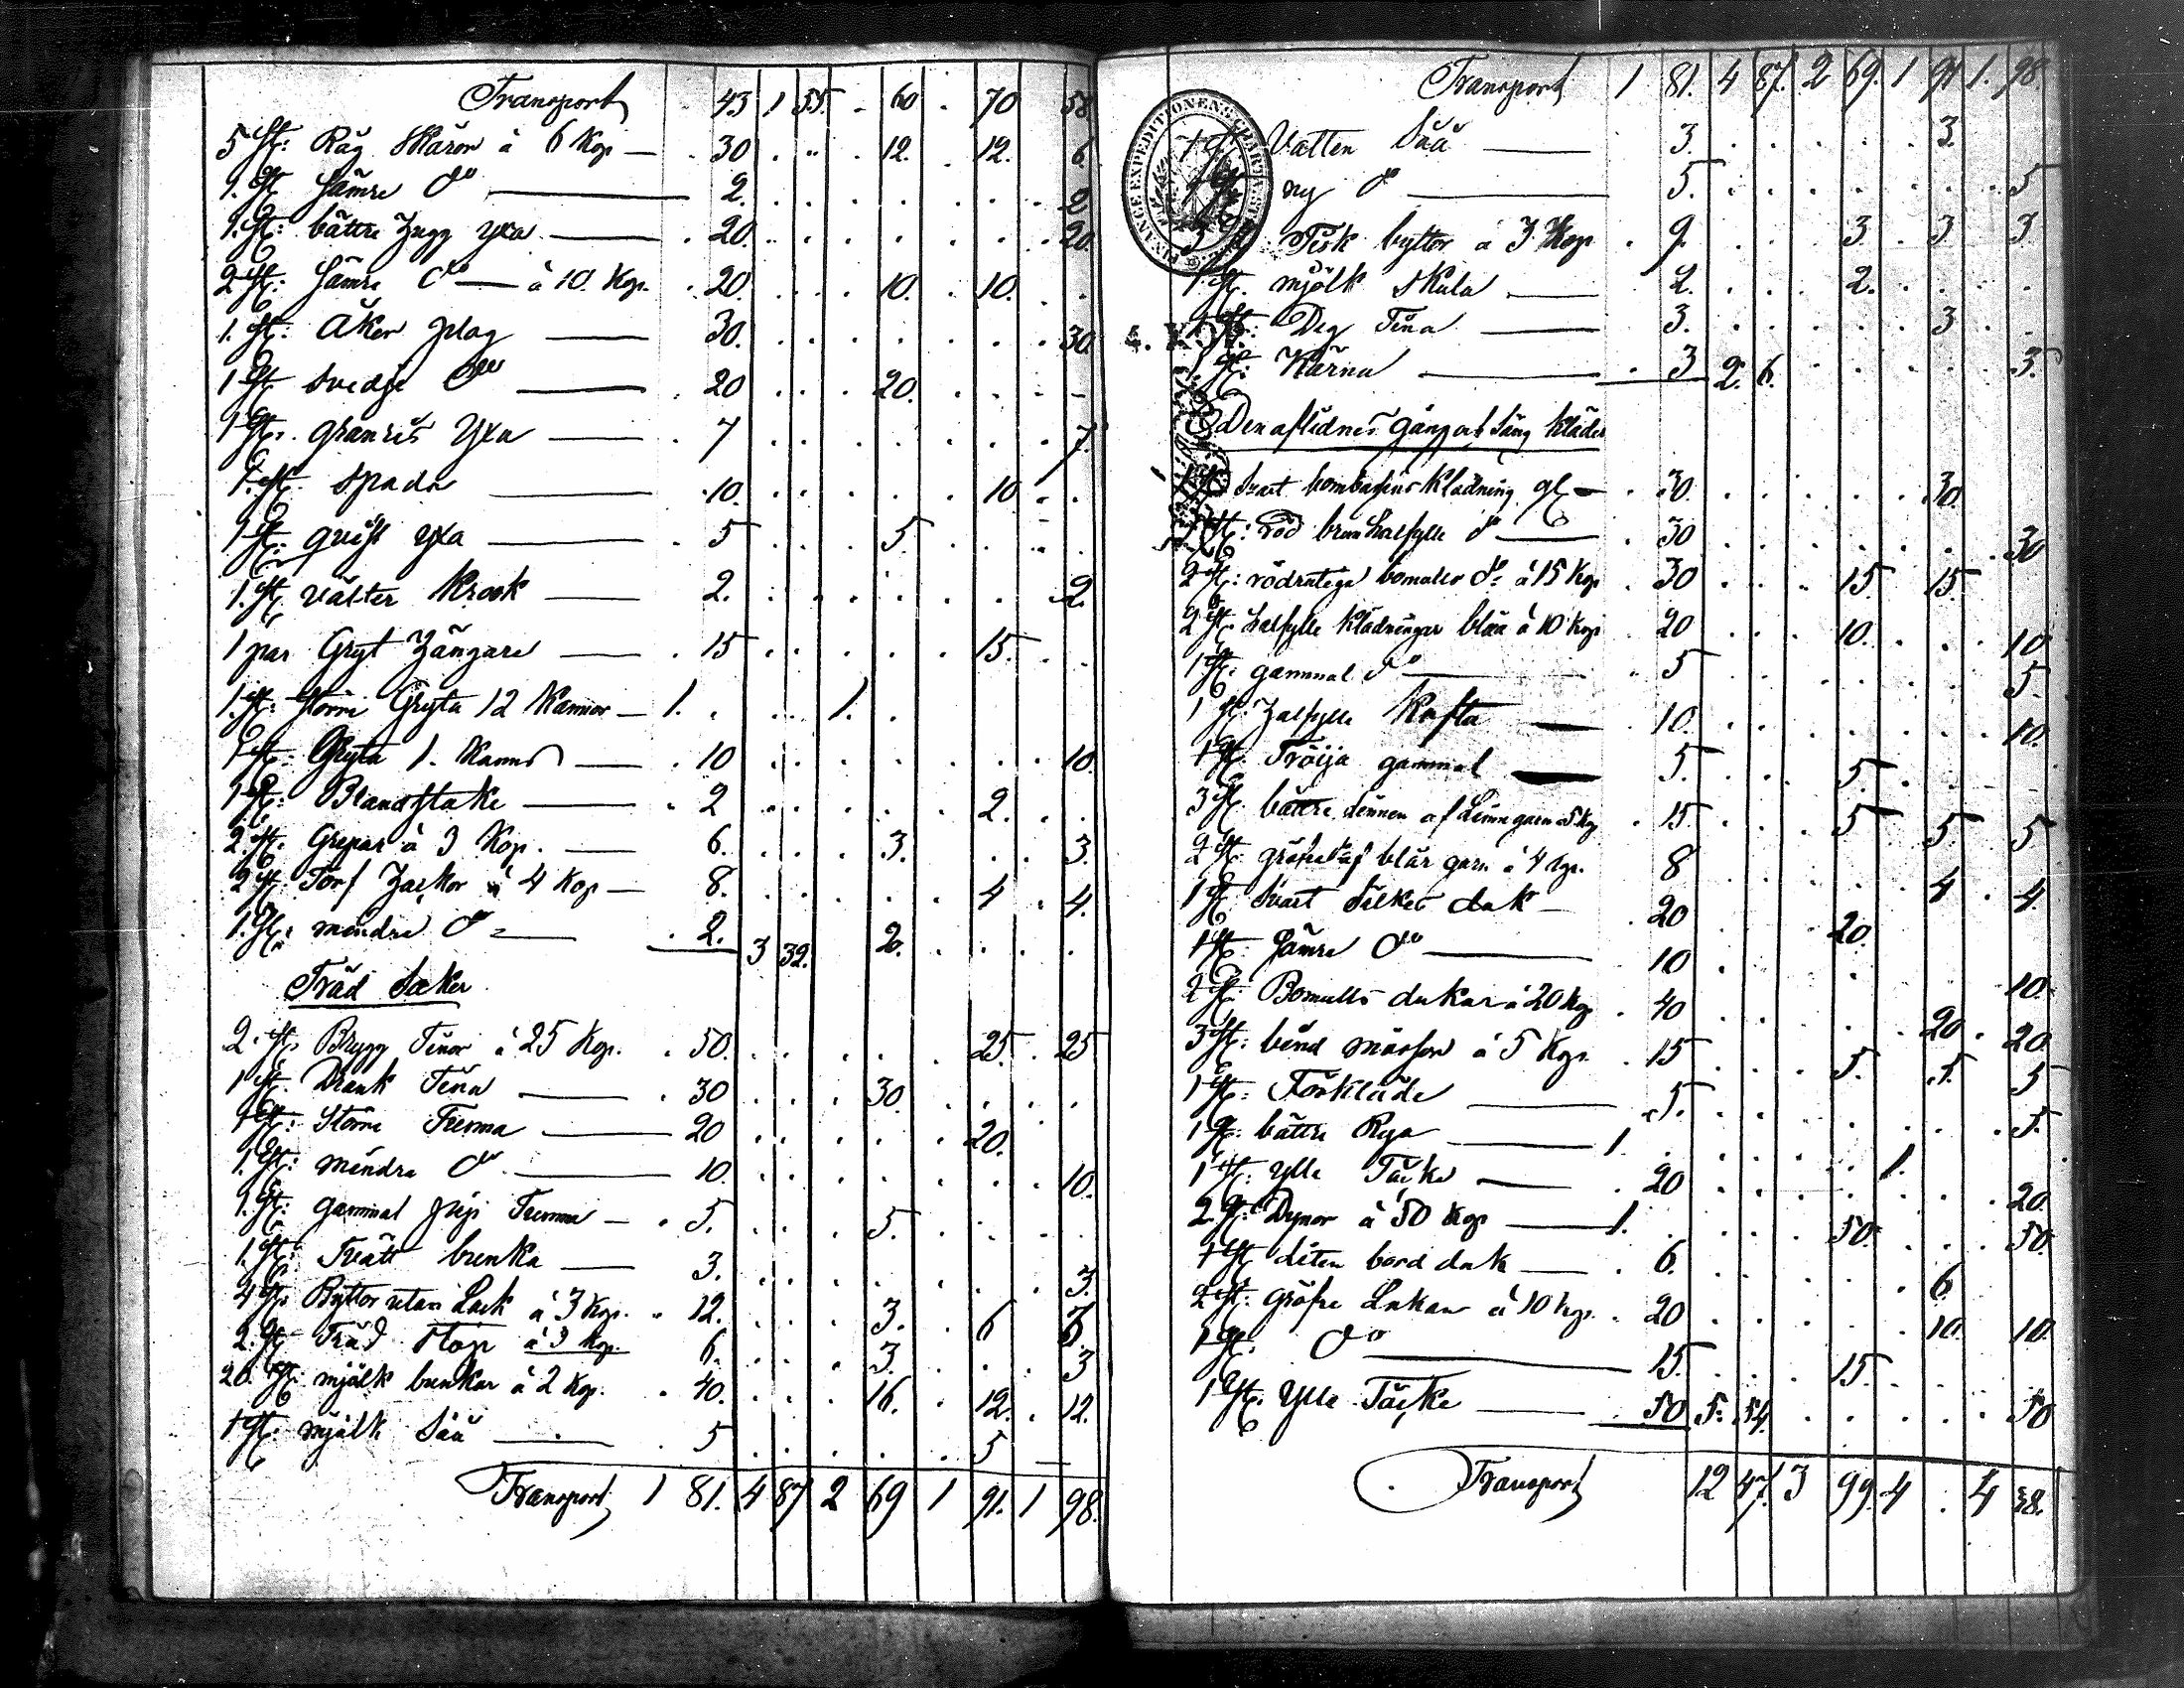 Transport . 43 1 55. . 60 . 70 58
5 st: Råg Skäror à 6 Kop — . 30 . „ . 12. . 12. 6.
1. st. sämre do — 2. 2
1. st: bättre Hugg yxa — . 20. 20.
2 st: sämre do — à 10. Kop. . 20. 10. 10.
1. st: Åker plog — 30. 30.
1 st svedje do — . 20 20.
1 st. granris yxa — . 7 7.
1. st. spada — . 10. 10
1 st. quist yxa — . 5 5.
1. st. välter Krook — 2. 2.
1 par Gryt Hängare — . 15 15.
1. st: större Gryta 12 Kannor — 1. 1.
1 st. Gryta 1. Kanna — . 10 10.
1 st: Blandstake — . 2 2.
2. st. Grepar à 3 Kop. — 6. 3. 3.
2 st. Torf Hackor à 4 Kop — 8. 4 4.
1. st: mindre do — . 2. 3 39. 2.
Träd Saker
2. st. Brygg Tinor à 25 Kop. . 50. 25. 25
1 st. Drank Tina — . 30 30.
1 st: större Tunna — 20 20.
1. st: mindre do — 10. 10.
1. st: gammal Tunna — . 5. 5.
1. st: Tvätt bunka — 3. 3.
4 st. Byttor utan Lock à 3 Kop. . 12. 3. 6 3.
2. st. Träd Stop à 3 Kop. 6. 3. 3
20. st: mjölk bunkar à 2 Kop. . 40. 16. 12. 12.
1 st. mjölk Såå — . 5 5
Transport 1 81. 4 87 2 69 1 91. 1 98.
Transport 1 81. 4 87. 2 69. 1 91 1. 98.
FINANCE EXPEDITIONENS CHARTÆ
4. KOP.
1 st Vatten Såå — 3. 3.
ny do — 5. 5
3 st Fisk byttor à 3 Kop . 9. 3. 3 3
1 st. mjölk Skula — 2. 2.
1 st: Deg Tina — 3. 3.
1 st: Kärna — . 3 2. 6. 3.
Den aflidnes gång och Säng kläder
1 st Svart bombasins Klädning gl — . 30. 30.
1 st: röd brun halfylle do — . 30 30
2 st: rödrutiga bomulls do à 15 Kop . 30 15. 15.
2 st. halfylle klädningar blåa à 10 Kop 20 10. 10
1 st: gammal do — . 5 5.
1 st. halfylle Kofta — . 10. 10.
1 st. Tröija gammal — 5. 5.
3 st. bättre linnen af Linne garn à 5 Kop . 15. 5 5 5
2 st. gröfre af blår garn à 4 Kop. 8 4 4.
1 st Svart Silkes duk — . 20 20.
1 st. sämre do — . 10 10.
2 st: Bomulls dukar à 20 Kop . 40 20 20
3 st: bind mössor à 5 Kop. . 15 5. 5. 5
1 st: Förkläde — 5. 5.
1 st. bättre Rya — 1. 1.
1 st: ylle Täcke — . 20 20.
2 st: Dynor à 50 Kop — 1. 50. 50.
1 st liten bord duk — . 6. 6.
2 st: gröfre Lakan à 10 Kop. . 20 10. 10.
1 st. do — 15. 15.
1 st. Ylle Täcke — . 50 5. 54. 50
Transport 12 47. 3 99. 4 . 4 48.